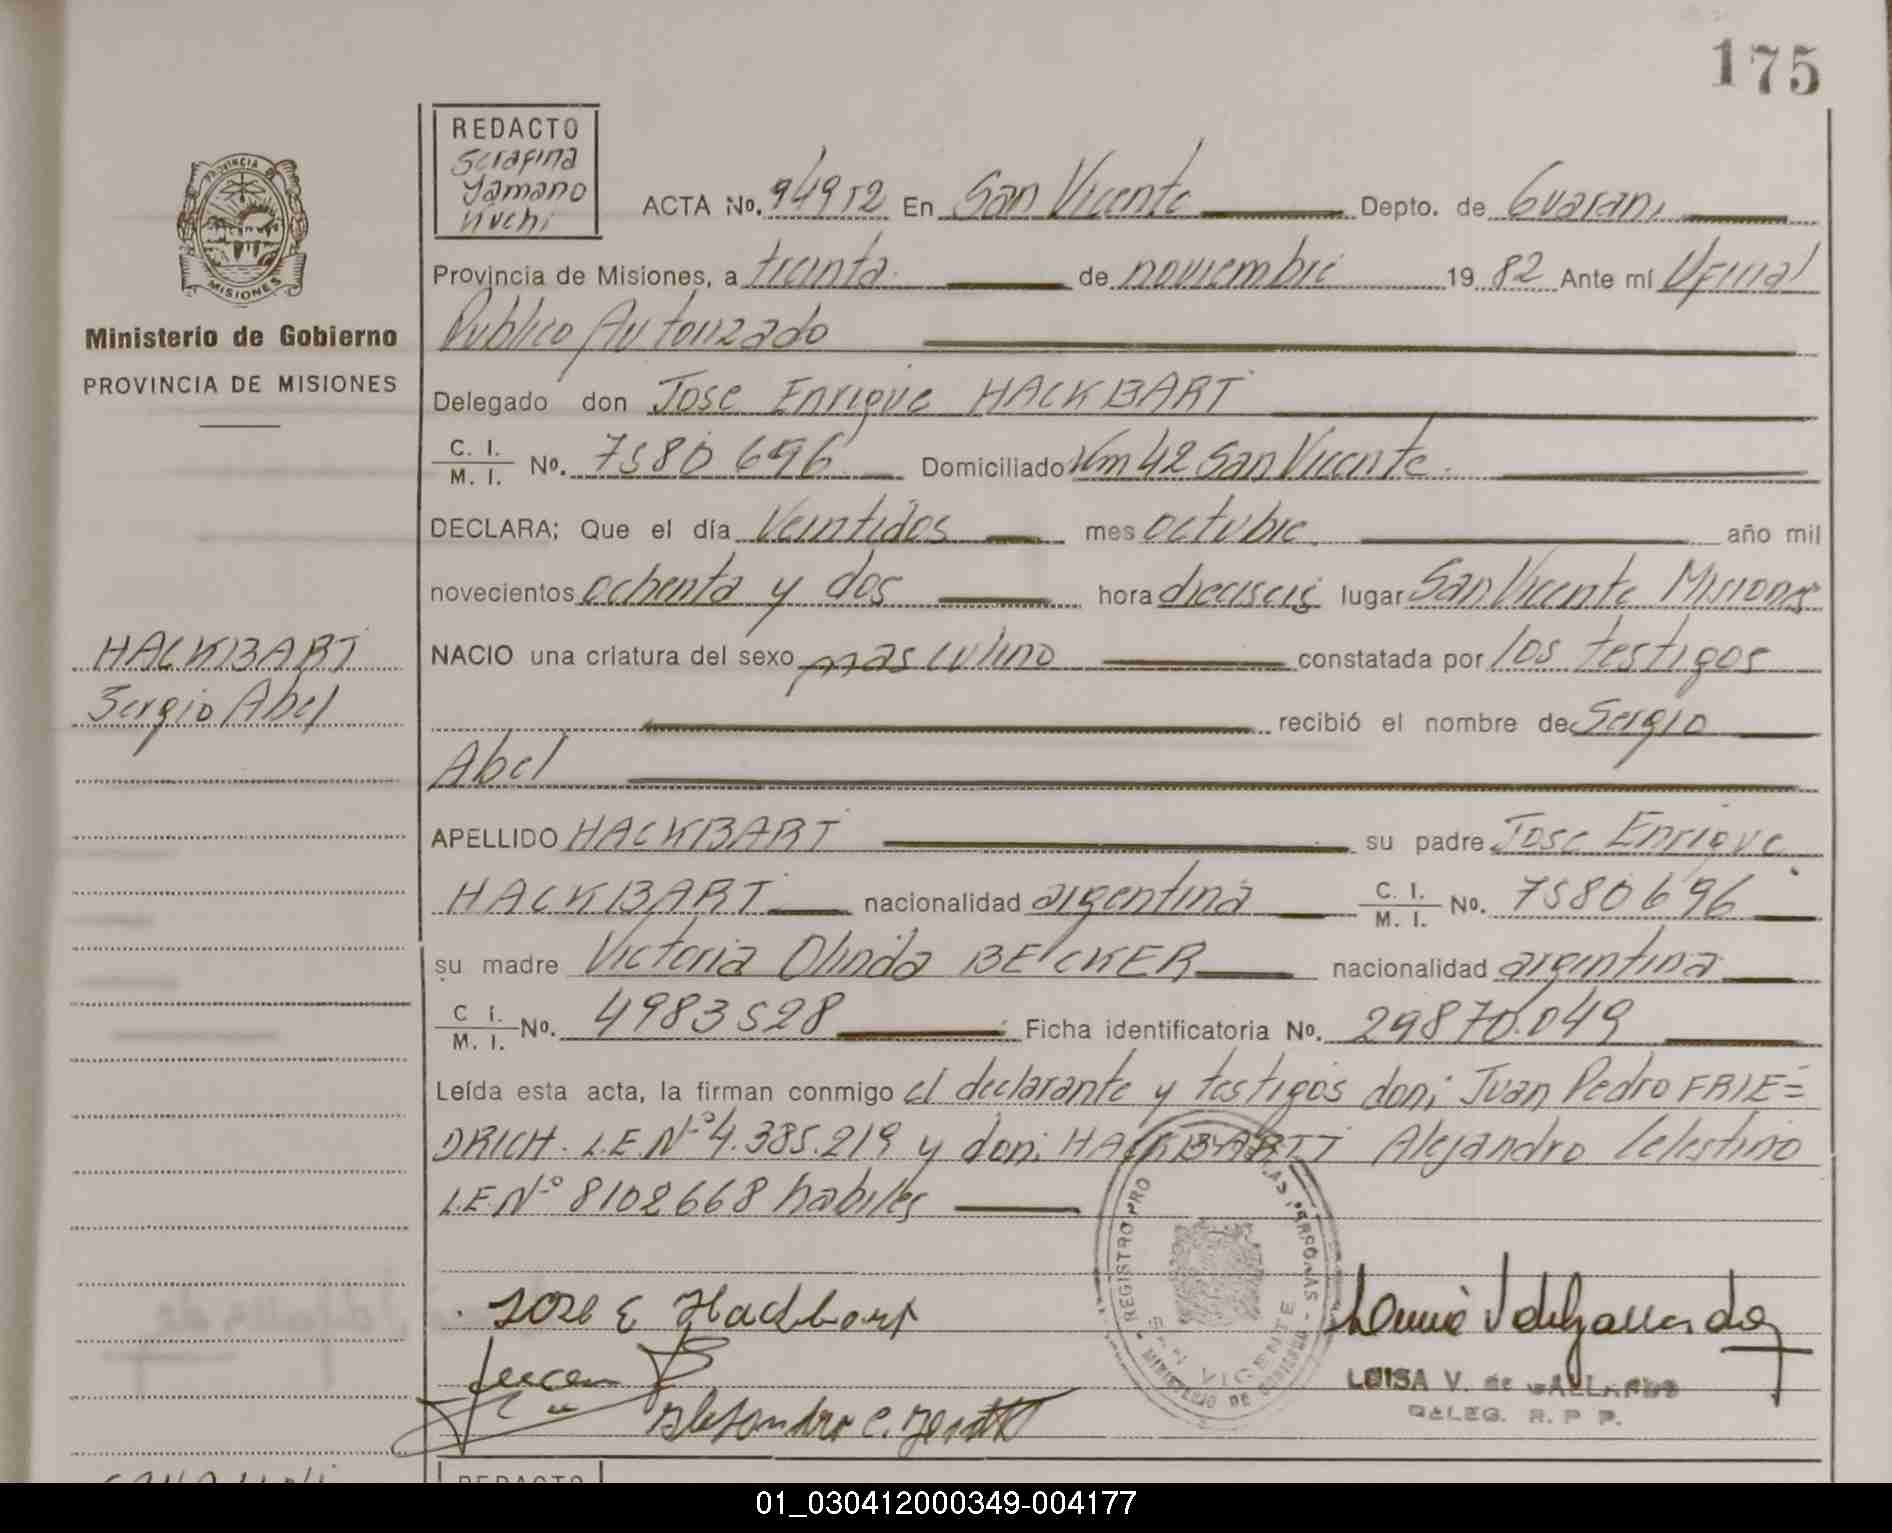 175
REDACTO
Serafina
Yamano
Nuchi
PROVINCIA DE
MISIONES
Ministerio de Gobierno
PROVINCIA DE MISIONES
ACTA No. 94952 En San Vicente Depto. de Guarani
Provincia de Misiones, a treinta de noviembre 1982 Ante mí Oficial
Publico Autorizado
Delegado don Jose Enrique HACKBART
C. I. / M. I. No. 7580696 Domiciliado Km 42 San Vicente
DECLARA; Que el día Veintidos mes octubre año mil
novecientos ochenta y dos hora dieciseis lugar San Vicente Misiones
NACIO una criatura del sexo masculino constatada por los testigos
recibió el nombre de Sergio
Abel
HACKBART
Sergio Abel
APELLIDO HACKBART su padre Jose Enrique
HACKBART nacionalidad argentina C. I. / M. I. No. 7580696
su madre Victoria Olinda BECKER nacionalidad argentina
C. I. / M. I. No. 4983528 Ficha identificatoria No. 29870.049
Leída esta acta, la firman conmigo el declarante y testigos don; Juan Pedro FRIE=
DRICH. L.E.Nº 4.385.219 y don; HACKBARTT Alejandro Celestino
L.E.Nº 8102668 habiles
Jose E Hackbart
REGISTRO PRO
PERSONAS
SAN VICENTE
MINISTERIO DE GOBIERNO
LUISA V. de GALLARDO
DELEG. R. P. P.
REDACTO
01_030412000349-004177